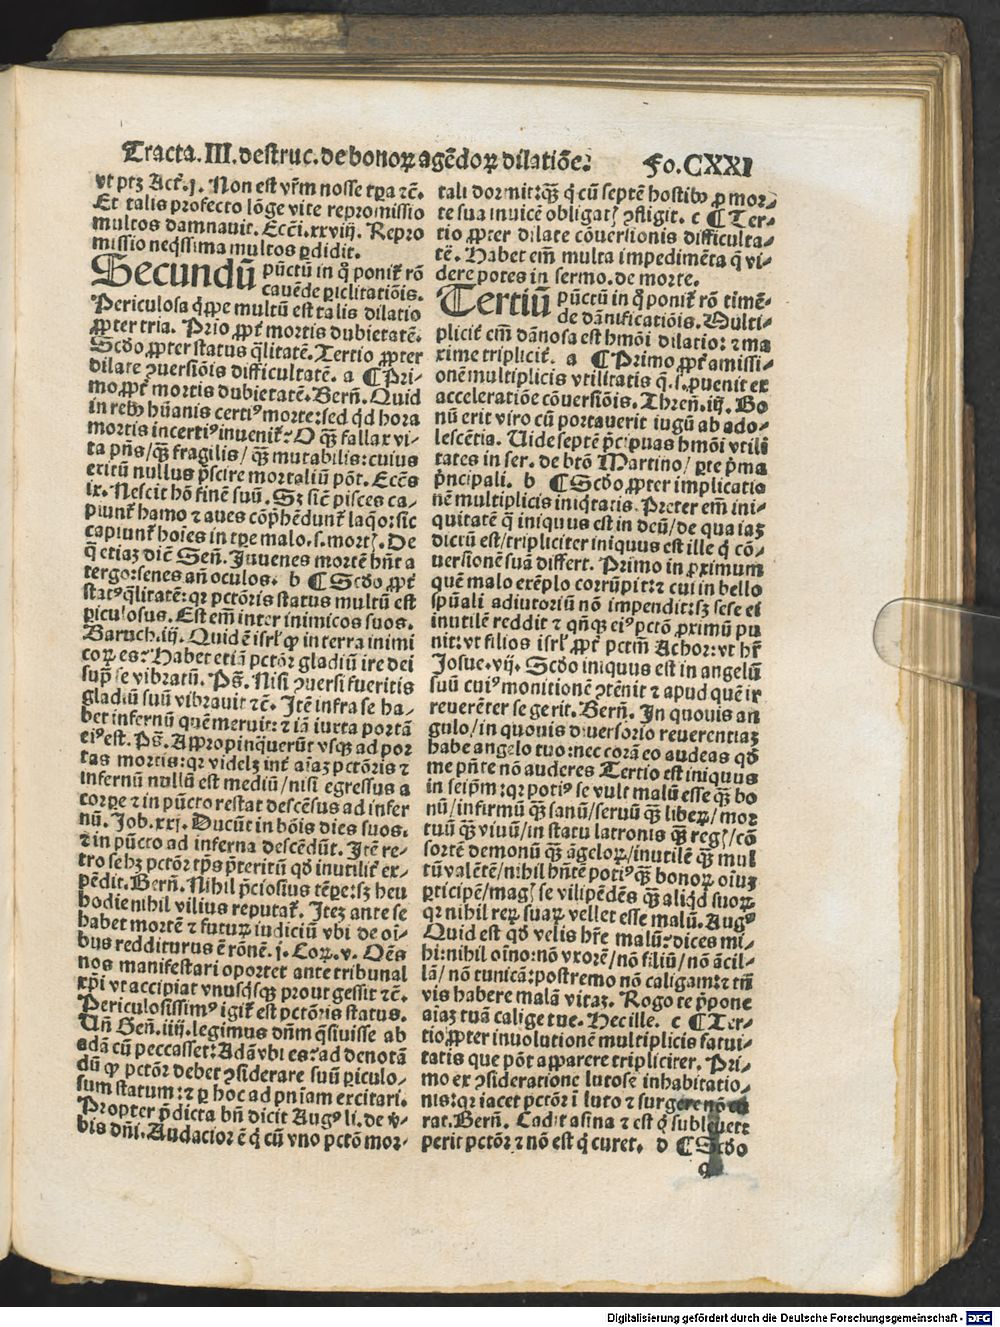 Tracta.III.destruc.de bonoꝝ agēdoꝝ dilatiōe. Fo.CXXI
vt ptꝫ Act̄.j. Non est vr̄m nosse tꝑa ⁊c̄.
Et talis profecto lōge vite repromissio
multos damnauit. Ecc̄i.xxviij. Repro
missio neq̄ssima multos ꝑdidit.
Secundū pūctū in q̊ ponit᷑ rō
cauēde ꝑiclitatiōis.
Periculosa q̇ppe multū est talis dilatio
ꝓpter tria. Prīo ꝓpt̄ mortis dubietatē.
Scd̄o ꝓpter status q̄litatē. Tertio ꝓpter
dilate ꝯuersiōis difficultatē. a ¶ Pri-
mo ꝓpt̄ mortis dubietatē. Bern̄. Quid
in rebꝰ hūanis certiꝰ morte: sed qd̄ hora
mortis incertiꝰ inuenit᷑? O q̄ꝫ fallax vi-
ta pn̄s/ q̄ꝫ fragilis/ q̄ꝫ mutabilis: cuius
exitū nullus p̄scire mortaliū pōt. Ecc̄s
ix. Nescit hō finē suū. Sꝫ sic̄ pisces ca-
piunt᷑ hamo ⁊ aues cōp̄hēdunt᷑ laq̄o: sic
capiunt᷑ hoīes in tꝑe malo .s. mortꝭ. De
q̄ etiaꝫ dic̄ Sen̄. Juuenes mortē hn̄t a
tergo: senes an̄ oculos. b ¶ Scd̄o ꝓpt̄
statꝰ q̄litatē: qꝛ pctōris status multū est
ꝑiculosus. Est em̄ inter inimicos suos.
Baruch.iij. Quid ē isrl̄ ꝙ in terra inimi
coꝝ es? Habet etiā pctōr gladiū ire dei
sup̄ se vibratū. Ps̄. Nisi ꝯuersi fueritis
gladiū suū vibrauit ⁊c̄. Itē infra se ha-
bet infernū quē meruit: ⁊ iā iuxta portā
eiꝰ est. Ps̄. Appropinquerūt vsqꝫ ad por
tas mortis: qꝛ videlꝫ int̄ aīaꝫ pctōris ⁊
infernū nullū est mediū/ nisi egressus a
corꝑe ⁊ in pūcto restat descēsus ad infer
nū. Job.xxj. Ducūt in bōis dies suos.
⁊ in pūcto ad inferna descēdūt. Itē re-
tro se hꝫ pctōr tp̄s p̄teritū qd̄ inutilit̄ ex-
pēdit. Bern̄. Nihil p̄ciosius tēꝑe: sꝫ heu
hodie nihil vilius reputat᷑. Iteꝫ ante se
habet mortē ⁊ futuꝝ iudiciū vbi de oī-
bus redditurus ē rōnē. j. Coꝝ. v. Oēs
nos manifestari oportet ante tribunal
xp̄i vt accipiat vnusq̇sqꝫ prout gessit ⁊c̄.
Periculosissimꝰ igit᷑ est pctōris status.
Un̄ Gen̄.iiij. legimus dn̄m q̄siuisse ab
adā cū peccasset: Adā vbi es? ad denotā
dū ꝙ pctōr debet ꝯsiderare suū ꝑiculo-
sum statum: ⁊ ꝑ hoc ad pn̄iam excitari.
Propter p̄dicta bn̄ dicit Augꝰ li. de v̄-
bis dn̄i. Audacior ē q̇ cū vno pctō mor-
tali dormit: q̄ꝫ q̇ cū septē hostibꝰ ꝓ mor-
te sua inuicē obligatꝭ ꝯfligit. c ¶ Ter-
tio ꝓpter dilate cōuersionis difficulta-
tē. Habet em̄ multa impedimēta q̄ vi-
dere potes in sermo. de morte.
Tertiū pūctū in q̊ ponit᷑ rō timē-
de dānificatiōis. Multi-
plicit̄ em̄ dānosa est hmōi dilatio: ⁊ ma
xime triplicit̄. a ¶ Primo ꝓpt̄ amissi-
onē multiplicis vtilitatis q̄ .s. ꝓuenit ex
acceleratiōe cōuersiōis. Thren̄. iij. Bo
nū erit viro cū portauerit iugū ab ado-
lescētia. Uide septē p̄cipuas hmōi vtili
tates in ser. de btō Martino/ ꝑte p̄ma
p̄ncipali. b ¶ Scd̄o ꝓpter implicatio
nē multiplicis iniq̇tatis. Preter em̄ ini-
quitatē q̄ iniquus est in deū/ de qua iaꝫ
dictū est/ tripliciter iniquus est ille q̇ cō-
uersionē suā differt. Primo in ꝓximum
quē malo exēplo corrūpit: ⁊ cui in bello
spūali adiutoriū nō impendit: sꝫ sese ei
inutilē reddit ⁊ qn̄qꝫ eiꝰ pctō ꝓximū pu
nit: vt filios isrl̄ ꝓpt̄ pctm̄ Achor: vt hr̄
Josue. vij. Scd̄o iniquus est in angelū
suū cuiꝰ monitionē ꝯtēnit ⁊ apud quē ir
reuerēter se gerit. Bern̄. In quouis an
gulo/ in quouis diuersorio reuerentiaꝫ
habe angelo tuo: nec corā eo audeas qd̄
me pn̄te nō auderes Tertio est iniquus
in seip̄m: qꝛ potiꝰ se vult malū esse q̄ꝫ bo
nū/ infirmū q̄ꝫ sanū/ seruū q̄ꝫ libeꝝ/ mor
tuū q̄ꝫ viuū/ in statu latronis q̄ꝫ regꝭ/ cō
sortē demonū q̄ꝫ āgeloꝝ/ inutilē q̄ꝫ mul
tū valētē/ nihil hn̄tē potiꝰ q̄ꝫ bonoꝝ oīuꝫ
ꝑticipē/ magꝭ se vilipēdēs q̄ꝫ aliq̇d suoꝝ.
qꝛ nihil reꝝ suaꝝ vellet esse malū. Augꝰ
Quid est qd̄ velis hr̄e malū? dices mi-
hi: nihil oīno: nō vxorē/ nō filiū/ nō ācil-
lā/ nō tunicā: postremo nō caligam: ⁊ tn̄
vis habere malā vitaꝫ. Rogo te p̄pone
aīaꝫ tuā calige tue. Hec ille. c ¶ Ter-
tio ꝓpter inuolutionē multiplicis fatui-
tatis que pōt apparere tripliciter. Pri-
mo ex ꝯsideratione lutose inhabitatio-
nis: qꝛ iacet pctōr ī luto ⁊ surgere nō cu
rat. Bern̄. Cadit asina ⁊ est q̇ subleuet:
perit pctōr ⁊ nō est q̇ curet. d ¶ Scd̄o
Digitalisierung gefördert durch die Deutsche Forschungsgemeinschaft - DFG